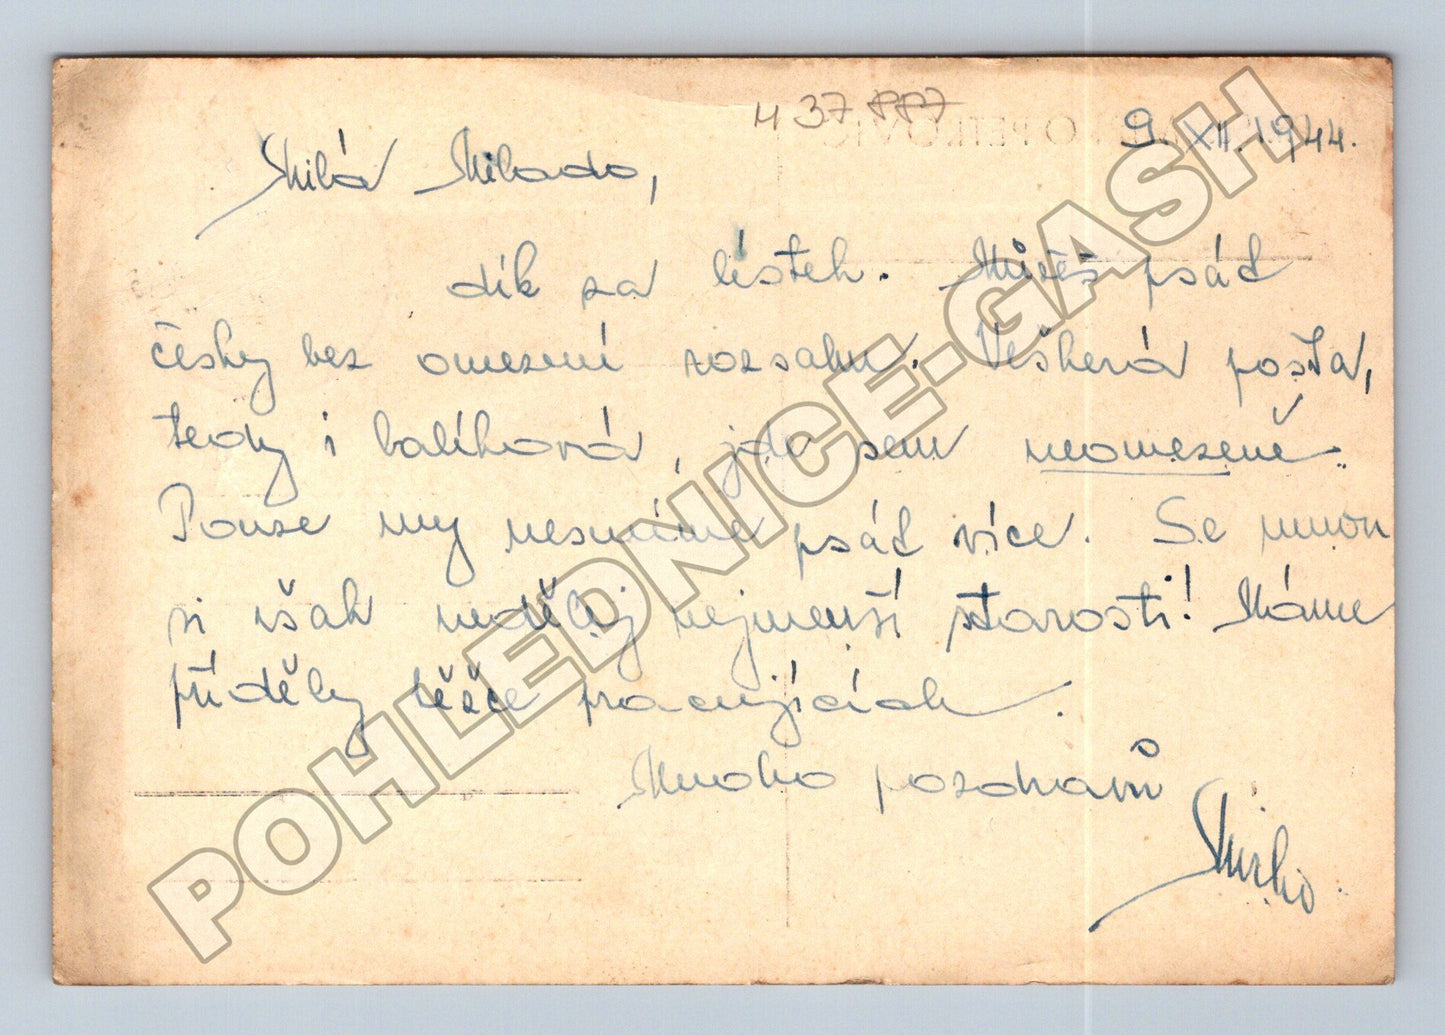 H 37 887
9. XII. 1944.
Milá Milado,
dík za lístek. Můžeš psát
česky bez omezení rozsahu. Veškerá pošta,
tedy i balíková, jde sem neomezeně.
Pouze my nesmíme psát více. Se mnou
si však nedělej nejmenší starosti! Máme
příděly těžce pracujících.
Mnoho pozdravů
Mirko
POHLEDNICE-GASH